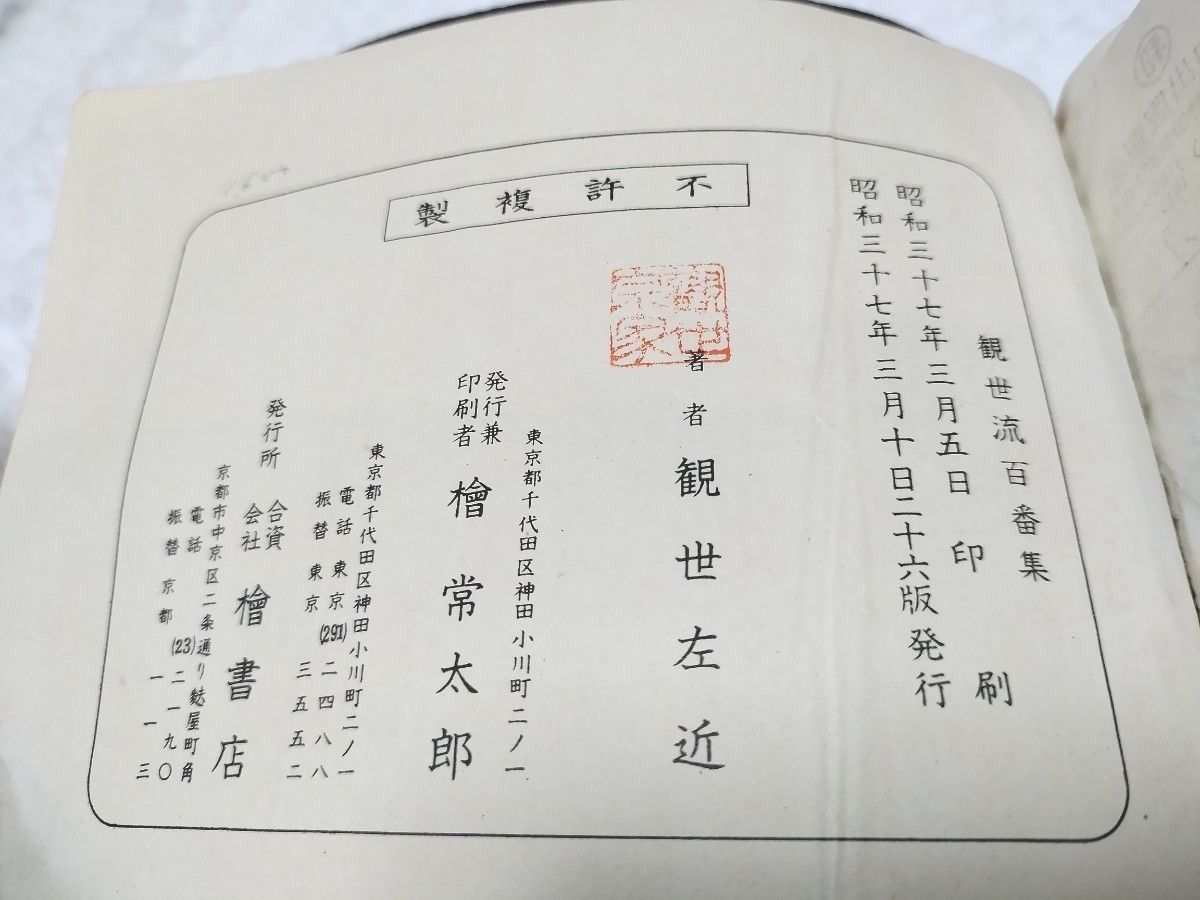 不許複製
観世流百番集
昭和三十七年三月五日印刷
昭和三十七年三月十日二十六版発行
観世宗家
著者 観世左近
東京都千代田区神田小川町二ノ一
発行兼
印刷者 檜常太郎
東京都千代田区神田小川町二ノ一
電話東京(291)二四八八
振替東京三五五二
発行所 合資会社 檜書店
京都市中京区二条通り麩屋町角
電話(23)二一九〇
振替京都一一三